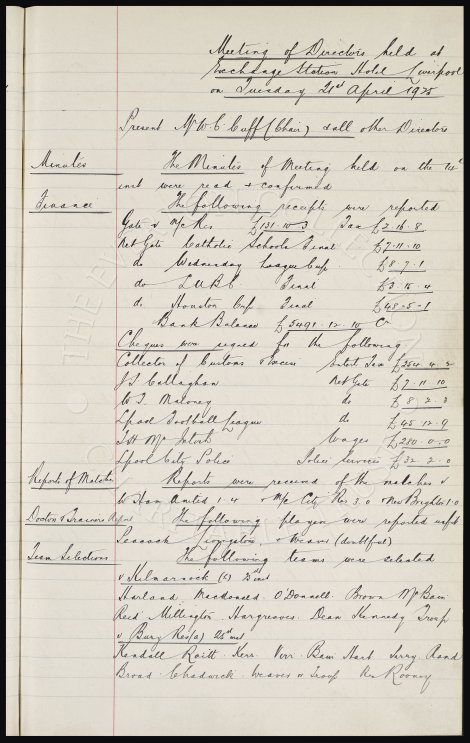 Meeting of Directors held at
Exchange Station Hotel Liverpool
on Tuesday 21st April 1925
Present Mr W.C. Cuff (Chair) & all other Directors
Minutes The Minutes of Meeting held on the
inst were read & confirmed
Finance The following receipts were reported
Gate v M/c Res £131-10-3 Tax £2-16-8
Net Gate Catholic Schools Final £7-11-10
do Wednesday League Cup £8-7-1
do Final £3-15-4
do Houston Cup Final £48-5-1
Bank Balance £5491-12-10 Cr
Cheques were signed for the following
Collector of Customs & Excise Entert Tax £354-4-2
J S Callaghan Net Gate £7-11-10
W J Maloney do £8-2-3
Lpool Football League do £45-12-9
McIntosh Wages £280-0-0
Lpool City Police Police Services £32-2-0
Reports of Matches Reports were received of the matches v
W Ham United 1-4 & M/c City Res 3-0 & New Brighton 1-0
Doctor & Trainers Report The following players were reported unfit
Seacock Livingstone & Weaver (doubtful)
Team Selections The following teams were selected
v Kilmarnock inst
Harland Macdonald O'Donnell Brown McBain
Reid Millington Hargreaves Dean Kennedy Troup
v Bury Res (a) 25th inst
Kendall Raitt Kerr Virr Bain Hart Parry Rand
Broad Chadwick Weaver or Troup Res Rooney